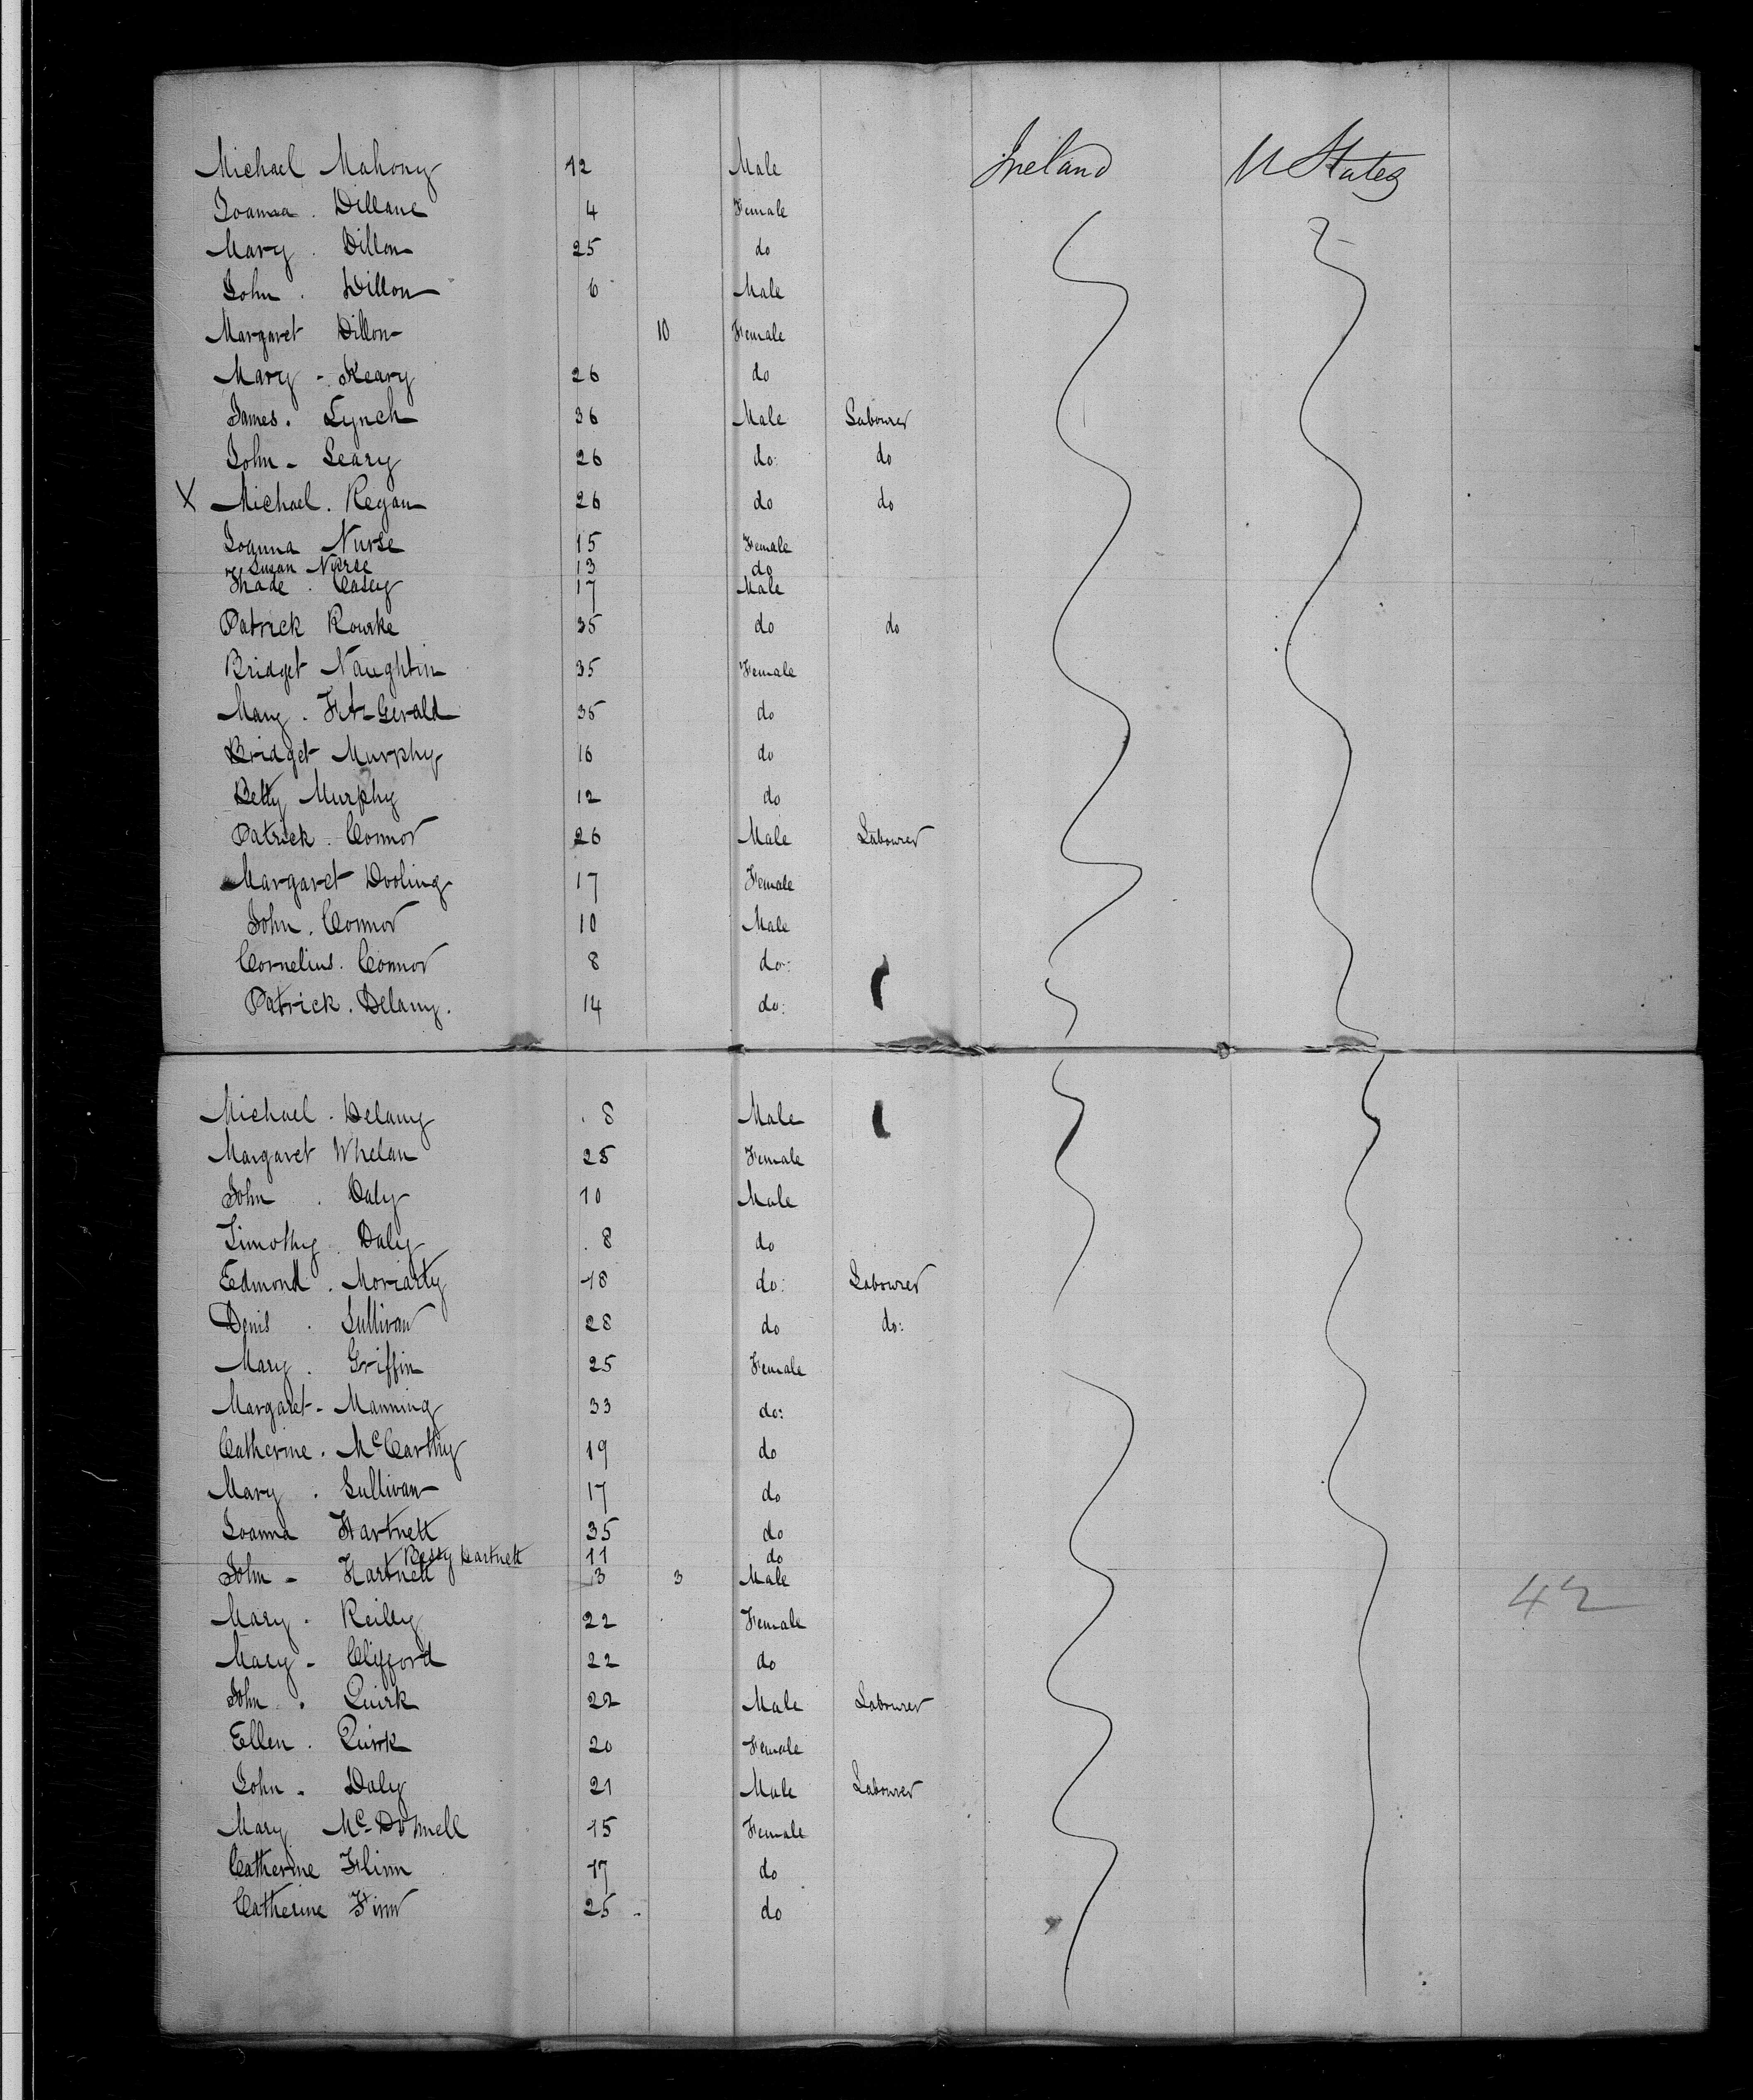 Michael Mahony 12 Male Ireland U States
Joanna . Dillane 4 Female
Mary . Dillon 25 do
John . Dillon 6 Male
Margaret Dillon 10 Female
Mary - Keary 26 do
James . Lynch 36 Male Labourer
John - Leary 26 do: do
X Michael . Regan 26 do do
Joanna Nurse 15 Female
Susan Nurse 13 do
Thade . Casey 17 Male
Patrick Rourke 35 do do
Bridget Naughtin 35 Female
Mary . FitzGerald 35 do
Bridget Murphy 16 do
Betty Murphy 12 do
Patrick . Connor 26 Male Labourer
Margaret Dooling 17 Female
John . Connor 10 Male
Cornelius . Connor 8 do:
Patrick . Delany . 14 do:
Michael . Delany 8 Male
Margaret Whelan 25 Female
John . Daly 10 Male
Timothy . Daly 8 do
Edmond . Moriarty 18 do: Labourer
Denis . Sullivan 28 do do:
Mary . Griffin 25 Female
Margaret - Manning 33 do:
Catherine . McCarthy 19 do
Mary . Sullivan 17 do
Joanna Hartnett 35 do
Bessy Hartnett 11 do
John - Hartnett 3 3 Male
42
Mary - Reilly 22 Female
Mary - Clifford 22 do
John . Quirk 22 Male Labourer
Ellen . Quirk 20 Female
John - Daly 21 Male Labourer
Mary Mc Donnell 15 Female
Catherine Flinn 17 do
Catherine Finn 25 do